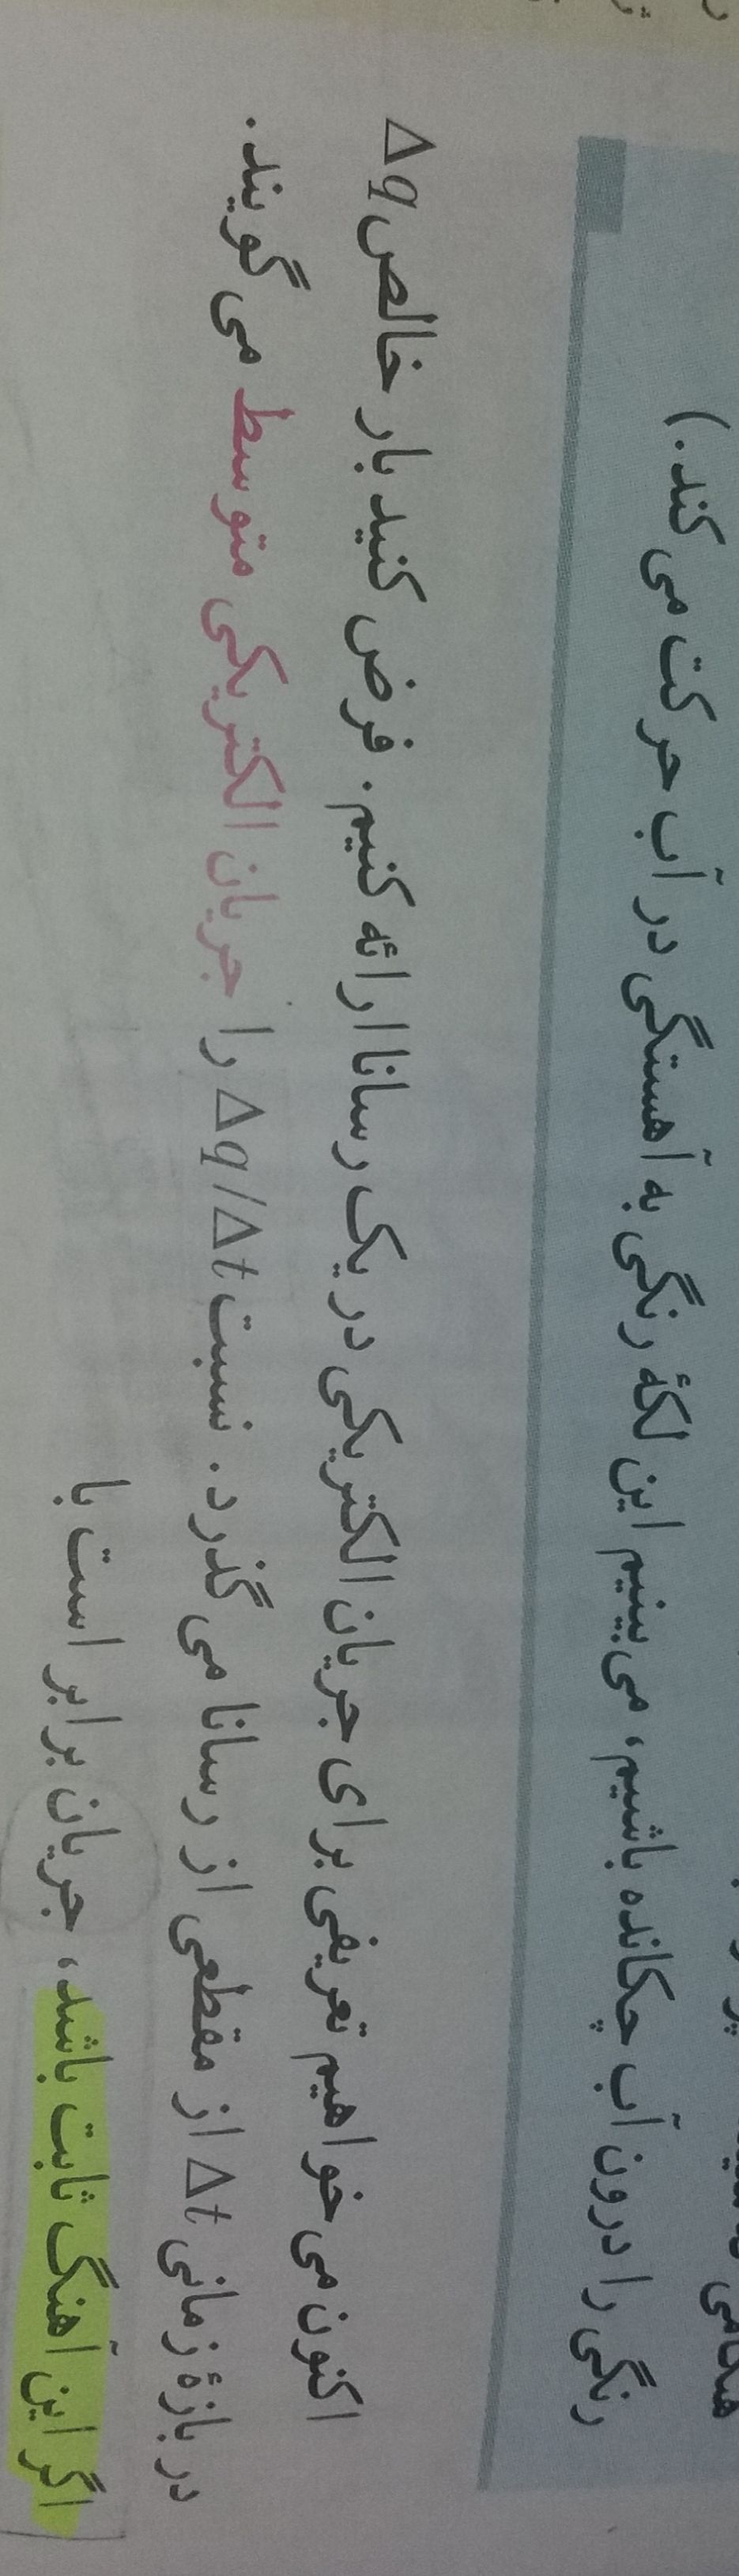 رنگی را درون آب چکانده باشیم، می‌بینیم این لکهٔ رنگی به آهستگی در آب حرکت می‌کند.)
اکنون می‌خواهیم تعریفی برای جریان الکتریکی در یک رسانا ارائه کنیم. فرض کنید بار خالص Δq
در بازهٔ زمانی Δt از مقطعی از رسانا می‌گذرد. نسبت Δq/Δt را جریان الکتریکی متوسط می‌گویند.
اگر این آهنگ ثابت باشد، جریان برابر است با